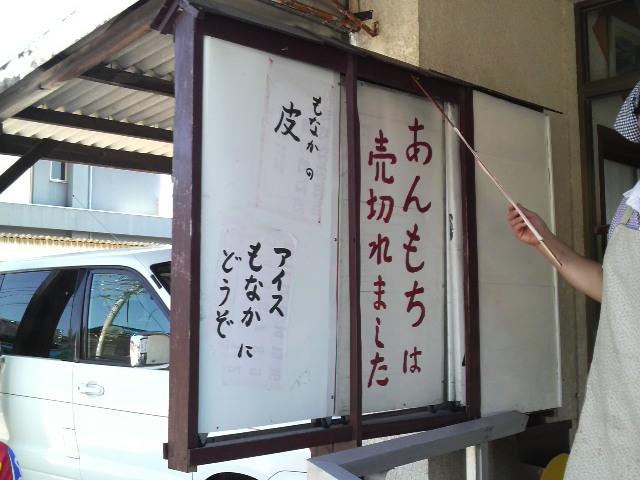 あんもちは
売切れました
もなかの
皮
アイス
もなかに
どうぞ